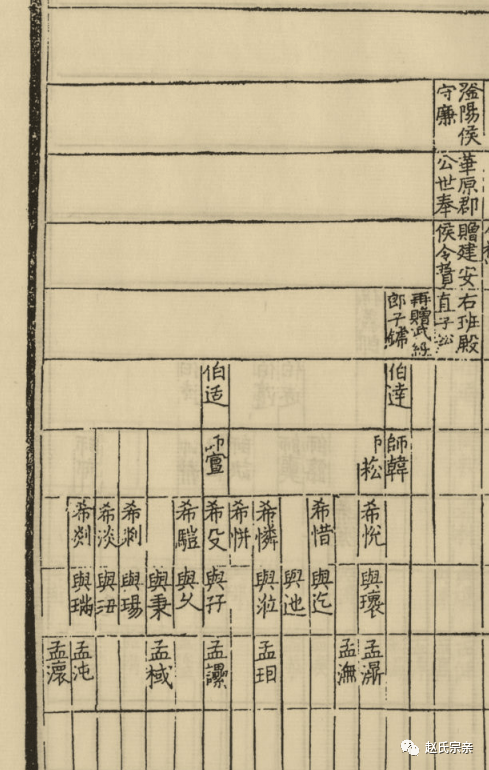 滏陽侯
守廉
華原郡
公世奉
贈建安
侯令
右班殿
直子
再贈武
郎子
伯達
伯适
師韓
師菘
師
希悅
希惜
希憐
希恲
希殳
希
希刺
希淡
希剡
與瓌
與迄
與池
與涖
與孖
與乂
與秉
與瑒
與沑
與瑞
孟
孟潕
孟
孟
孟棫
孟沌
孟澴
赵氏宗亲